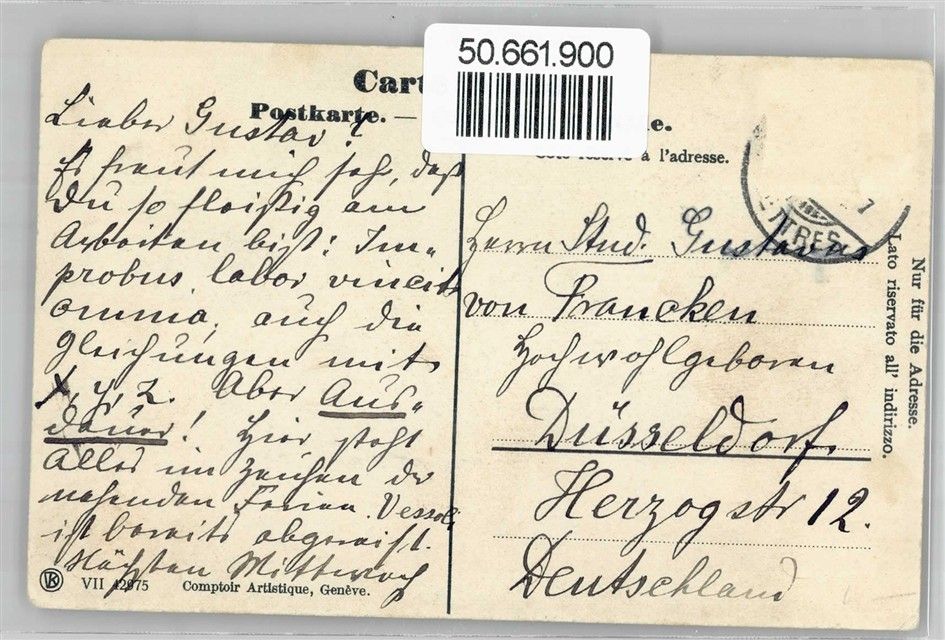 50.661.900
Postkarte. —
Côté réservé à l'adresse.
Lieber Gustav!
Es freut mich sehr, daß
Du so fleißig am
Arbeiten bist: Im-
probus labor vincit
omnia, auch die
Gleichungen mit
x, y, z. Aber Aus-
dauer! Hier steht
Alles im Zeichen der
nahenden Ferien. Vessoli
ist bereits abgereist.
Nächsten Mittwoch
Herrn Stud. Gustavus
von Francken
Hochwohlgeboren
Düsseldorf.
Herzogstr 12.
Deutschland
Nur für die Adresse.
Lato riservato all' indirizzo.
VK VII 42975 Comptoir Artistique, Genève.